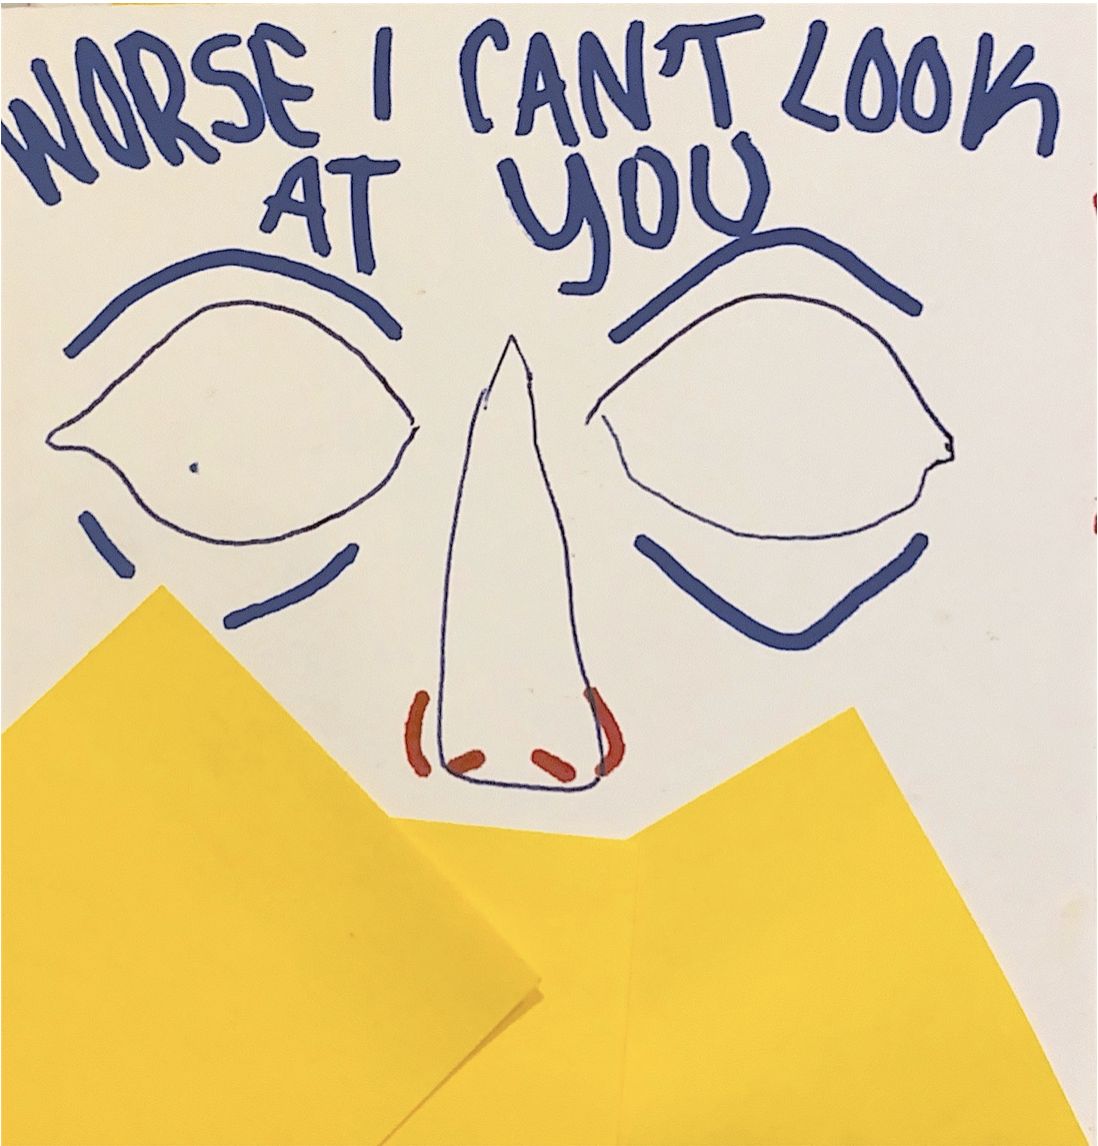 WORSE I CAN'T LOOK
AT YOU